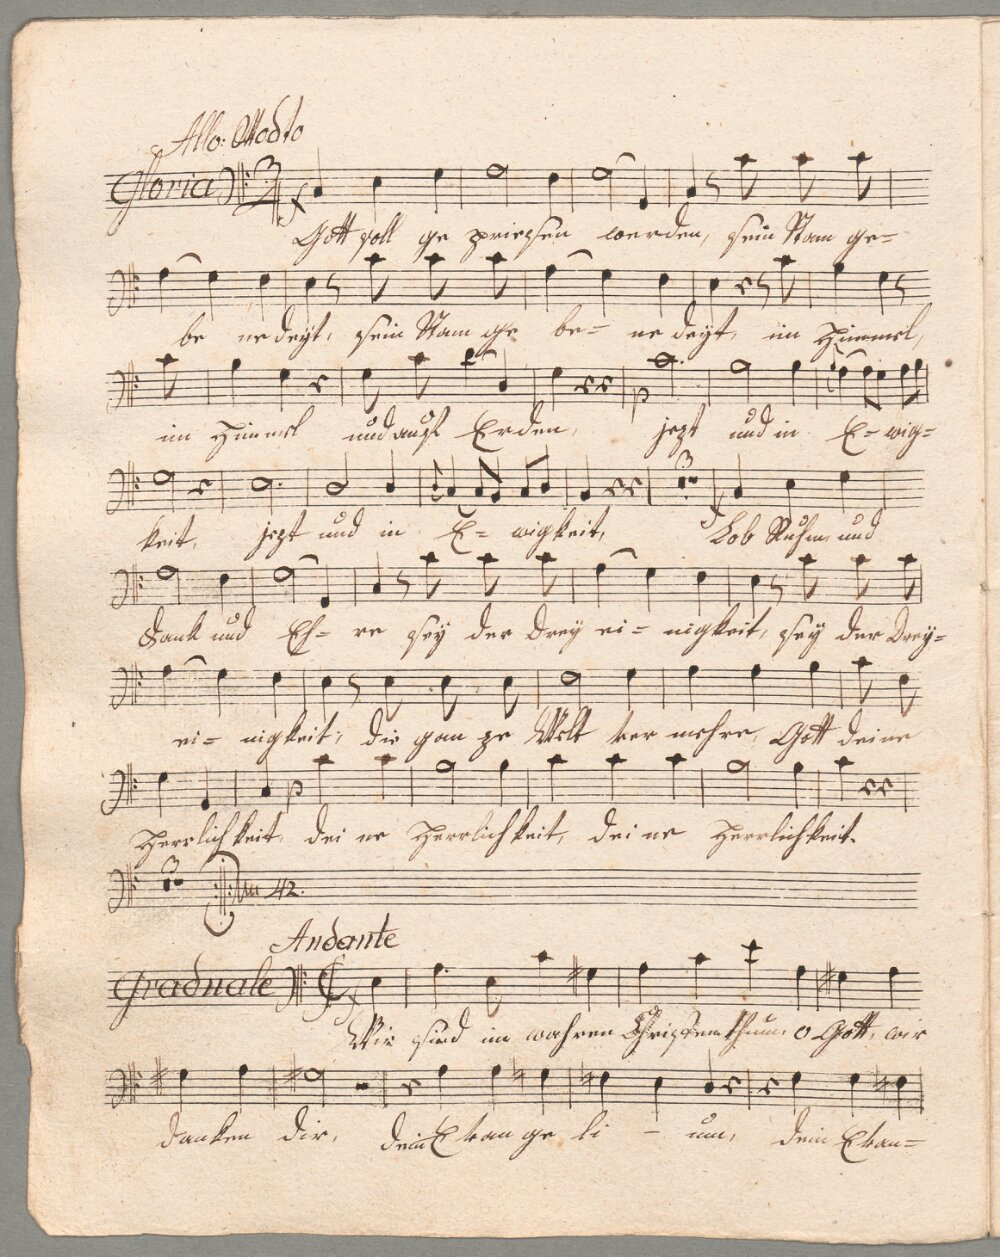 Allo: Modto
Gloria
Gott soll ge priesen werden, sein Nam ge=
be nedeyt, sein Nam ge be= ne deyt, im Himmel,
im Himmel und auf Erden, jezt und in E= wig=
keit, jezt und in E= wigkeit, Lob Ruhm und
3
Dank und Eh= re sey der Drey ei= nigkeit, sey der Drey=
ei= nigkeit, die gan ze Welt ver mehre, Gott deine
Herrlichkeit, dei ne Herrlichkeit, dei ne Herrlichkeit.
3 42.
Andante
Graduale
Wir sind im wahren Christenthum, o Gott, wir
danken dir, dein Evan ge li - um, dein Evan=